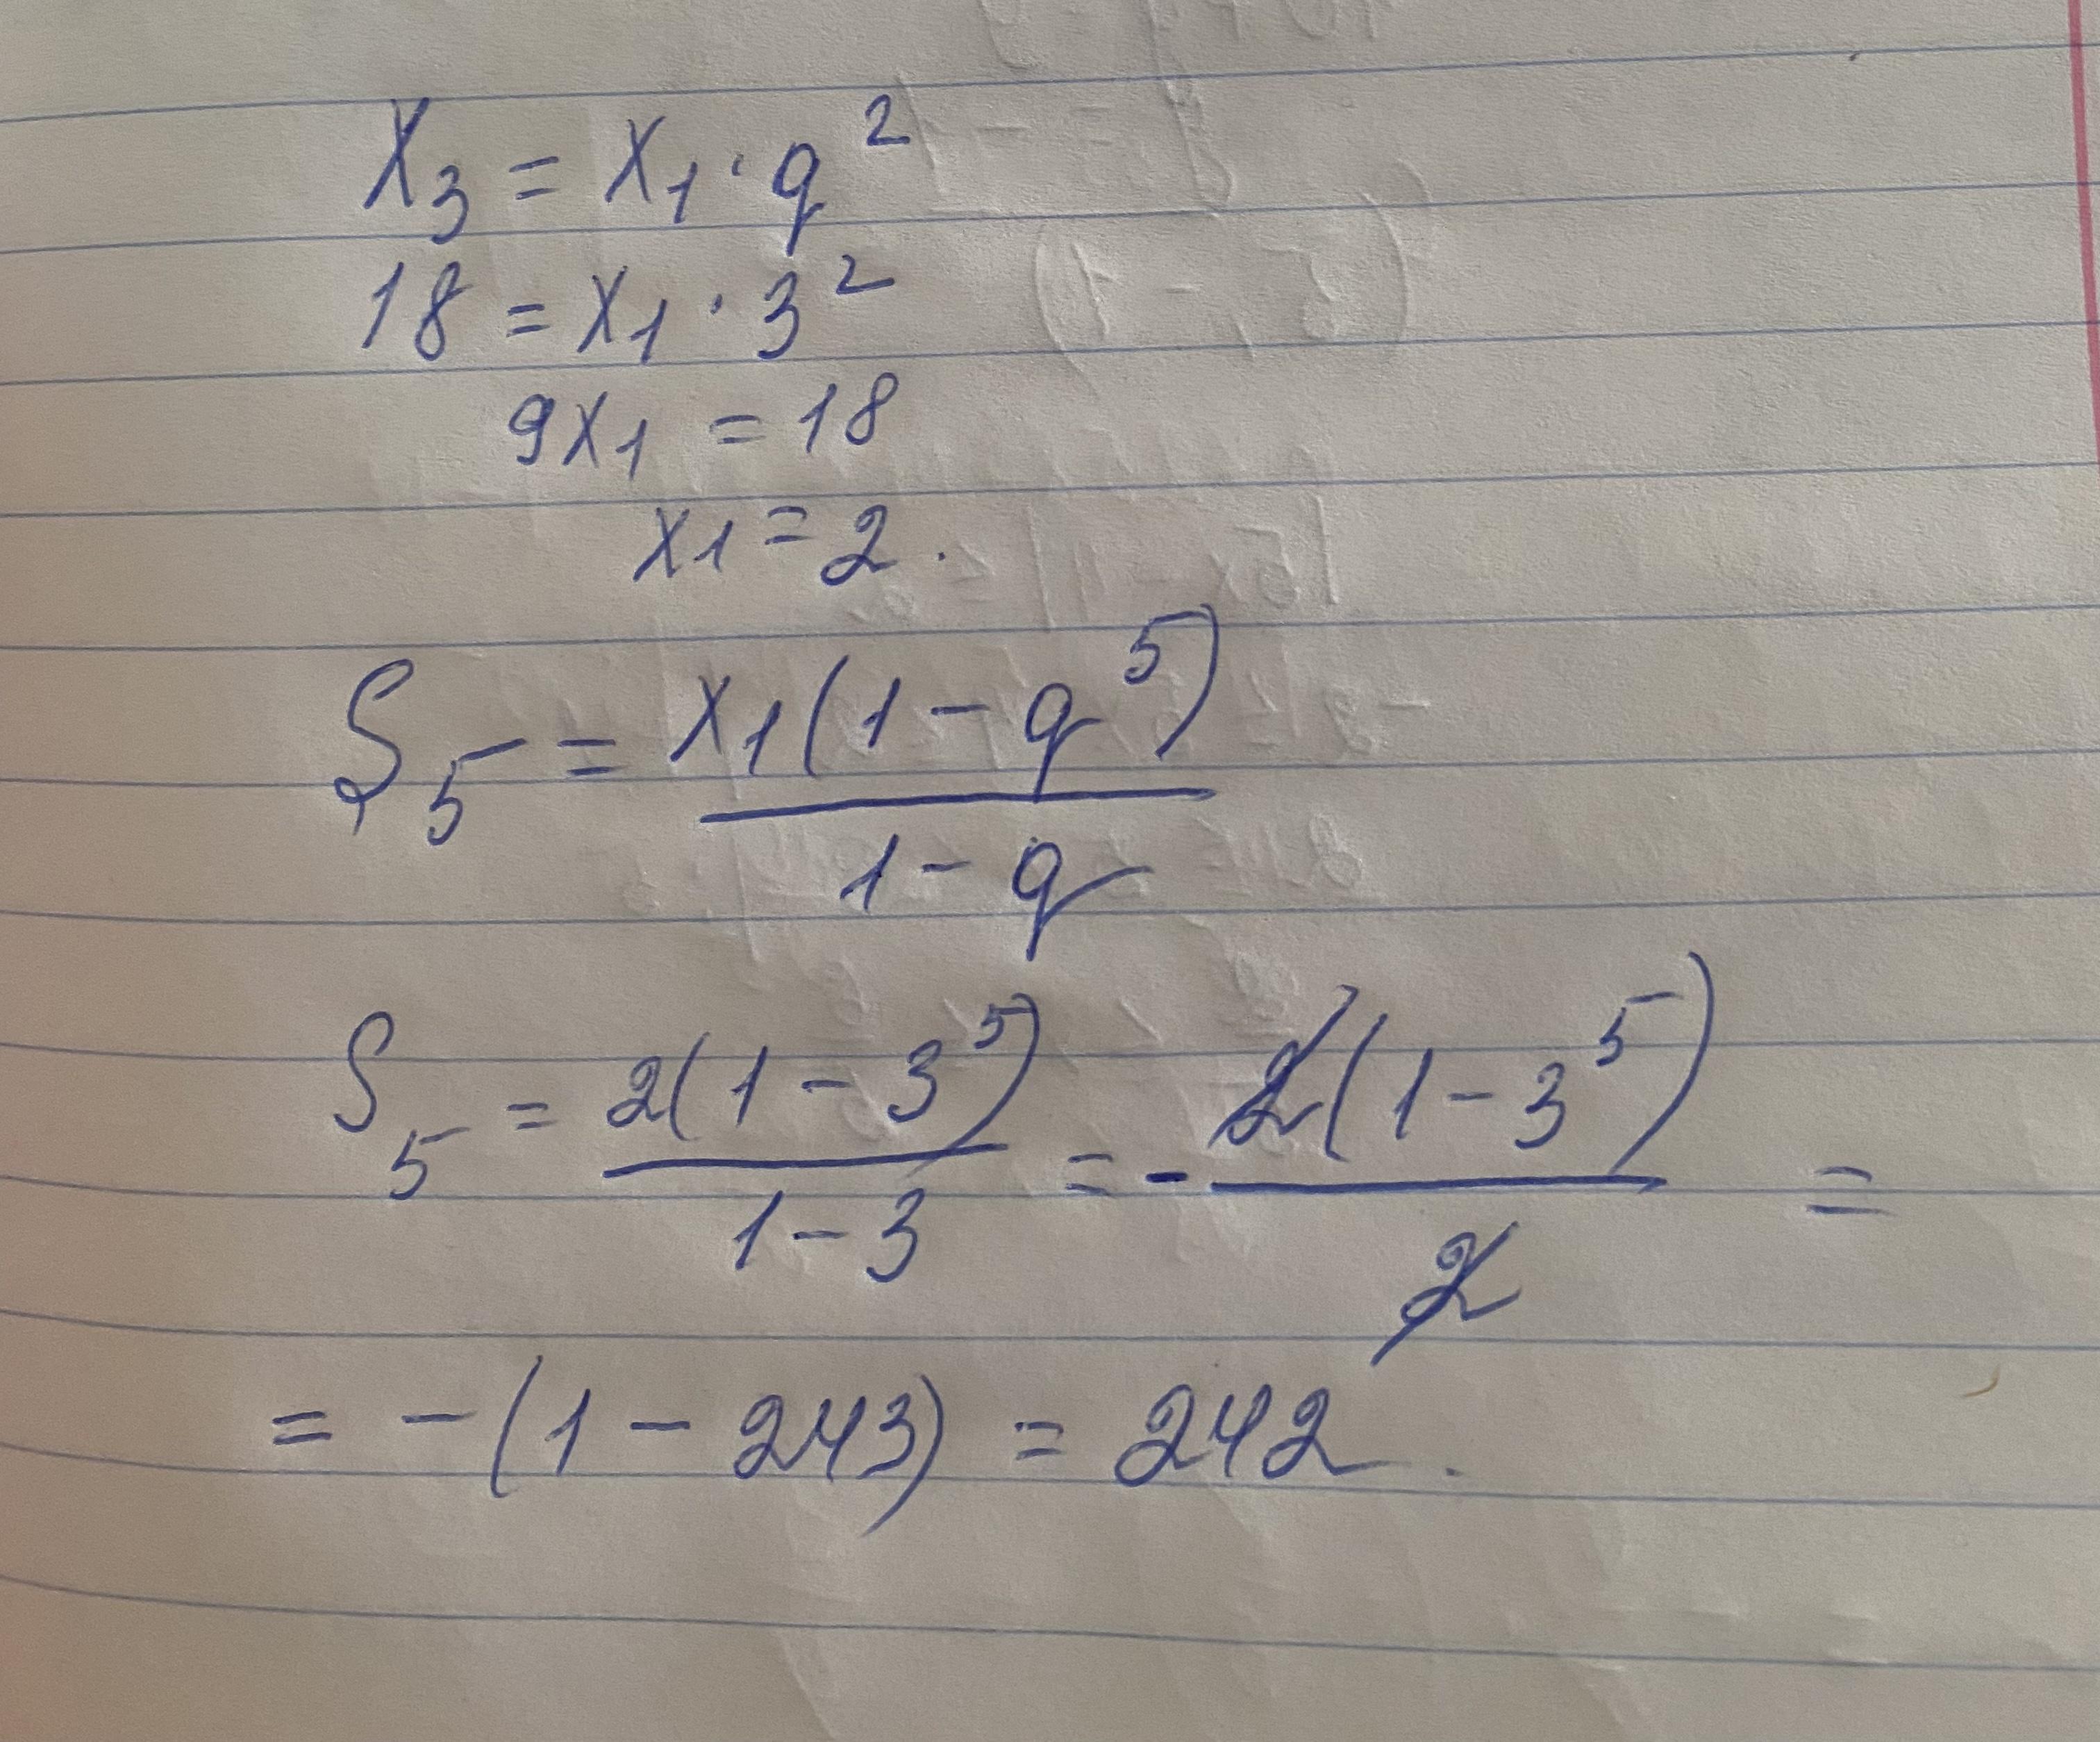 X₃ = X₁ · q²
18 = X₁ · 3²
9X₁ = 18
X₁ = 2.
S₅ = X₁(1 - q⁵) / (1 - q)
S₅ = 2(1 - 3⁵) / (1 - 3) = - 2(1 - 3⁵) / 2 =
= - (1 - 243) = 242.